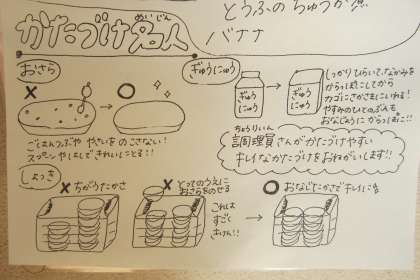 とうふのちゅうか煮
バナナ
かたづけ名人
めいじん
おさら
ごはんつぶや やさいをのこさない!
スプーンやはしできれいにとる!!
ぎゅうにゅう
ぎゅうにゅう
ぎゅうにゅう
しっかりひらいて、なかみを
からっぽにしてから
カゴにさかさまにいれる!
やすみのひとのぶんも
おなじようにからっぽに!!
ちょうりいん
調理員さんがかたづけやすい
キレイなかたづけをおねがいします!!
しょっき
ちがうたかさ
とってのうえに
おさらをのせる
これは
すごく
きけん!!
おなじたかさでキレイに